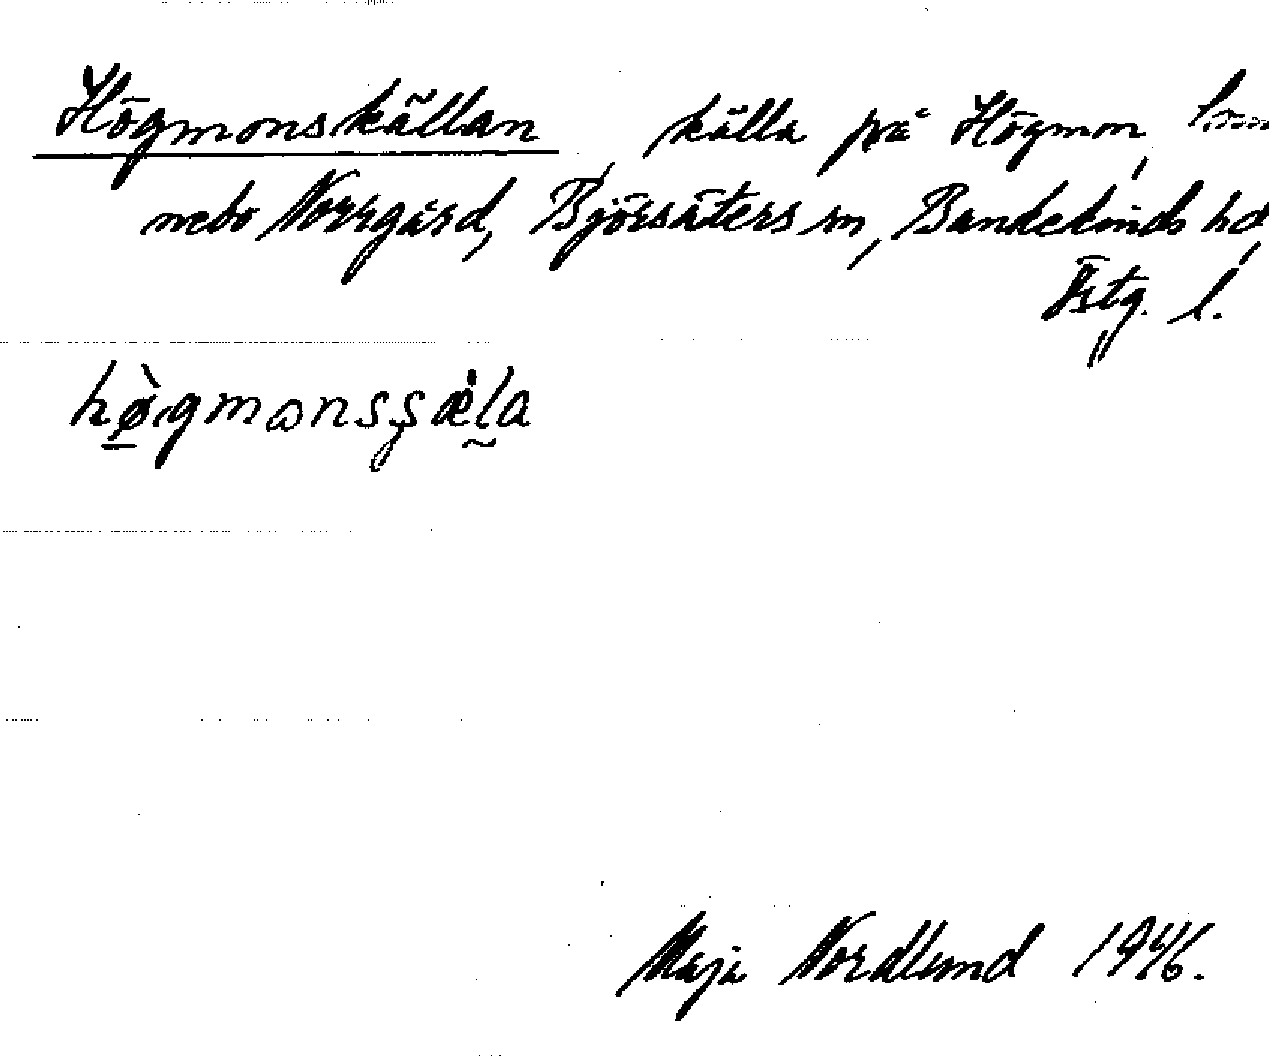 Högmonskällan, källa på Högmon,
nebo Norrgård, Björsäters sn, Bankekinds hd,
Östg. l.
hø̀gmɷnsʂæ̀la
Maja Nordlund 1946.